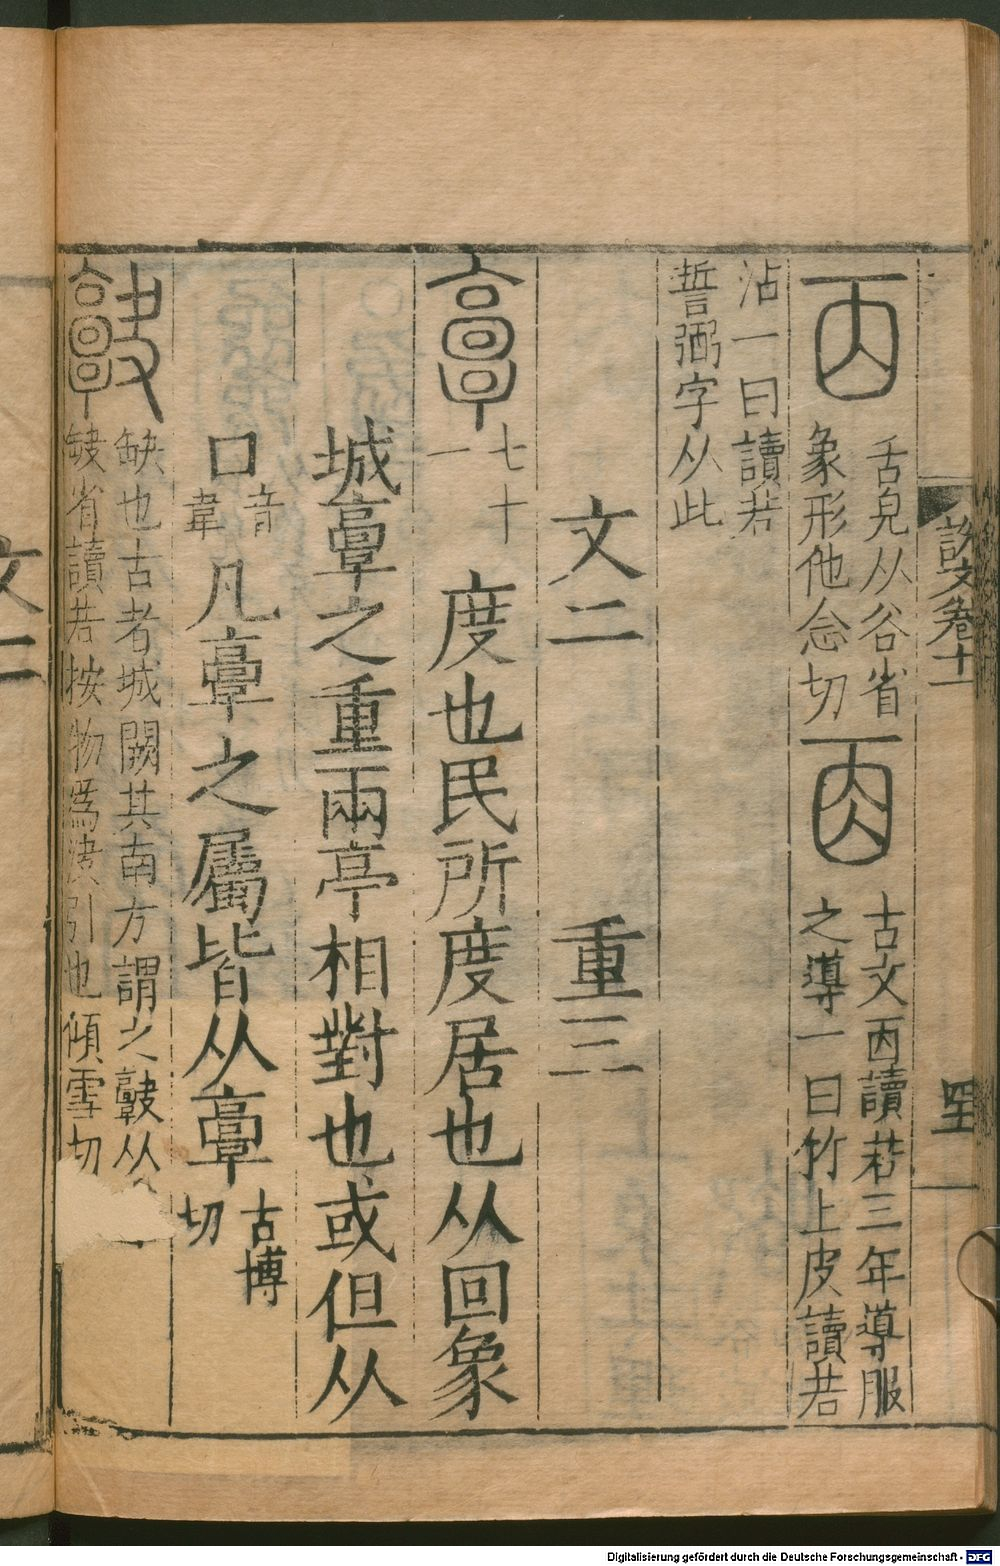 說文卷十一
四
㐁
舌皃从谷省
象形他念切
㐁
古文㐁讀若三年導服
之導一曰竹上皮讀若
沾一曰讀若
誓弻字从此
文二　重三
𩫏
七十
一
度也民所度居也从回象
城𩫏之重兩亭相對也或但从
口
音
韋
凡𩫏之屬皆从𩫏
古博
切
𩫨
缺也古者城闕其南方謂之𩫨从
缺省讀若按物爲決引也傾雪切
文二
Digitalisierung gefördert durch die Deutsche Forschungsgemeinschaft - DFG